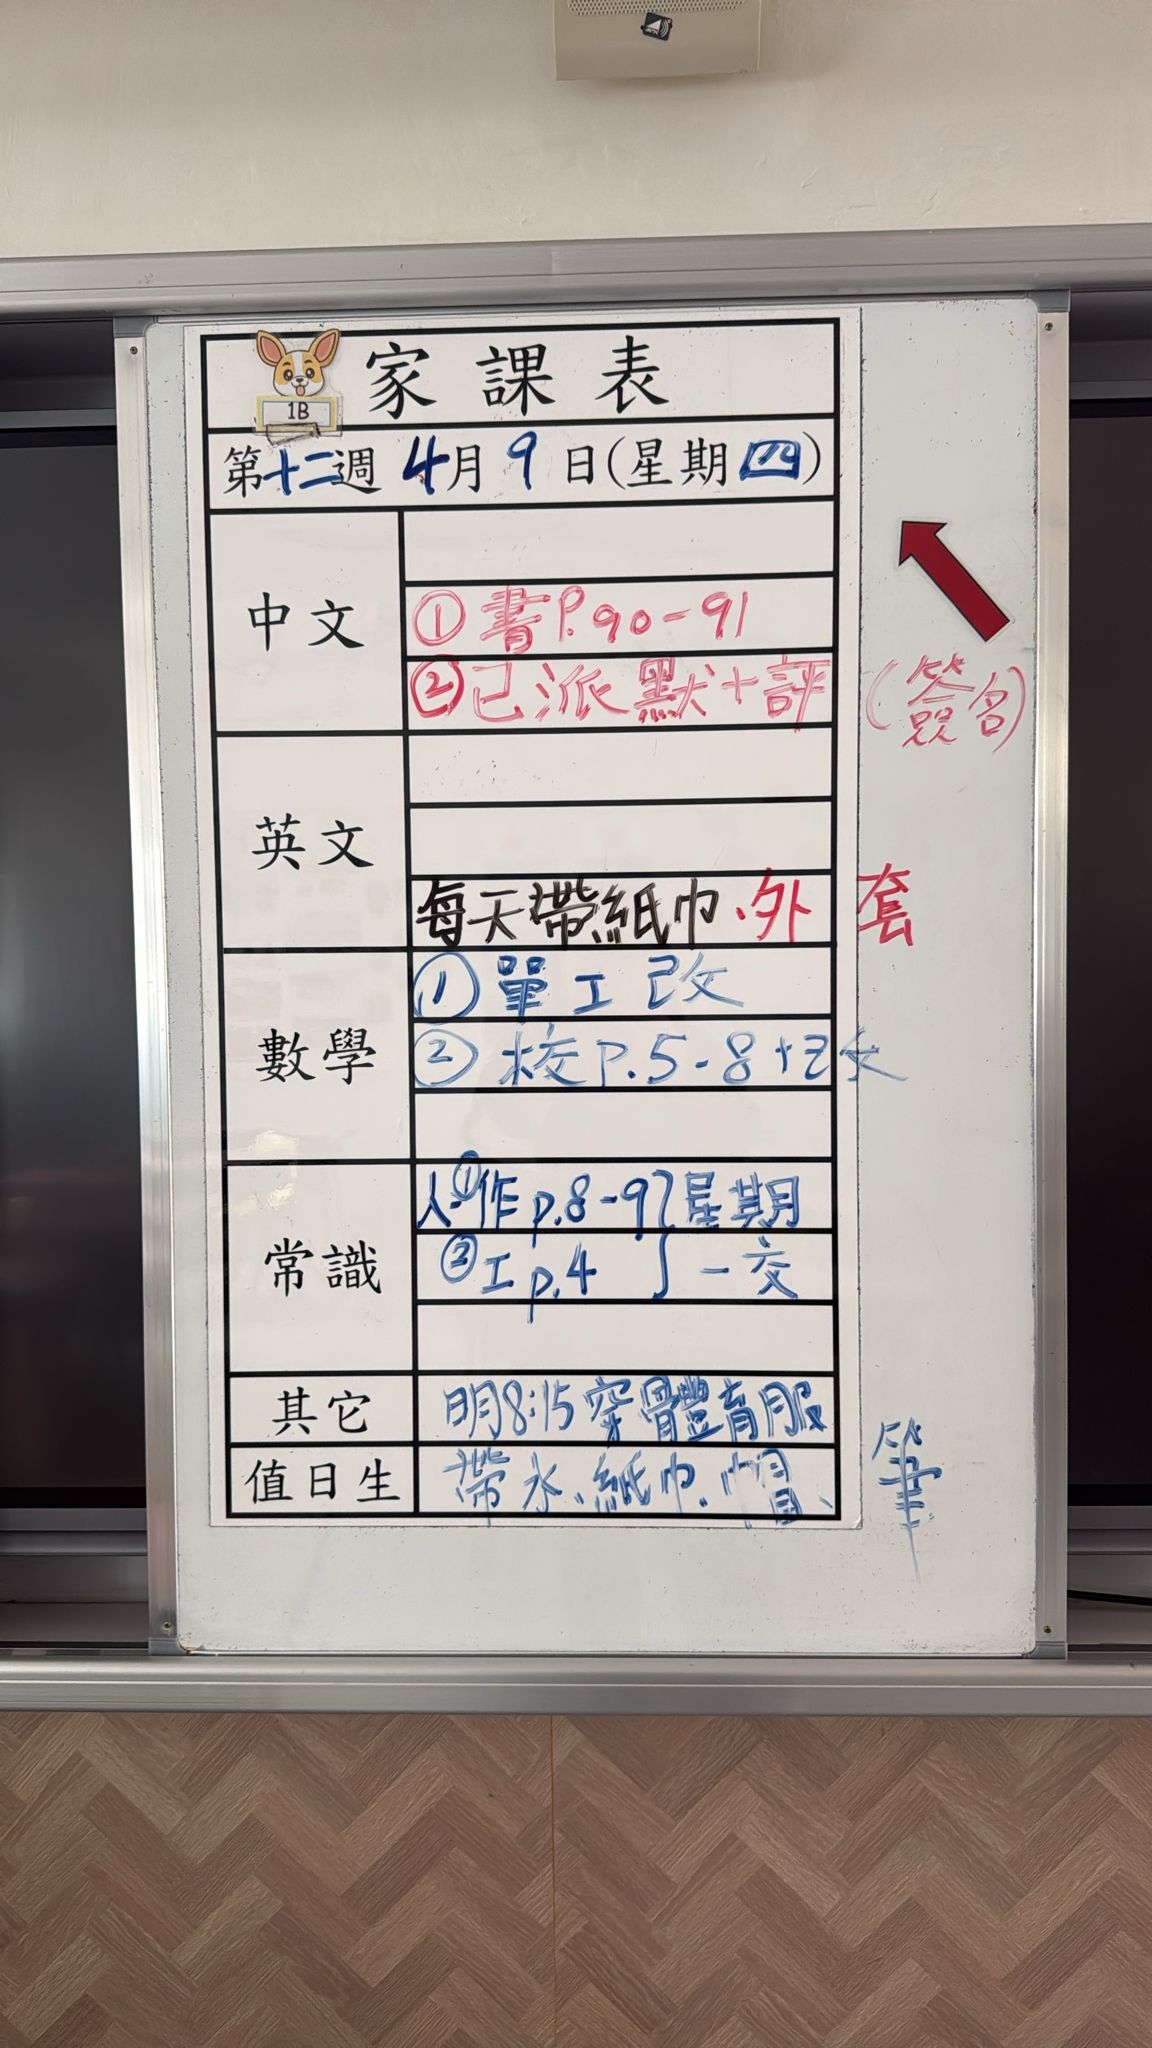 家課表
1B
第十二週 4月9日(星期四)
中文
①書P.90-91
②已派默+評(簽名)
英文
每天帶紙巾、外套
數學
①單工改
②校P.5-8+改
常識
人①作p.8-9}星期
②工p.4 一交
其它
明8:15穿體育服
值日生
帶水、紙巾、帽、筆